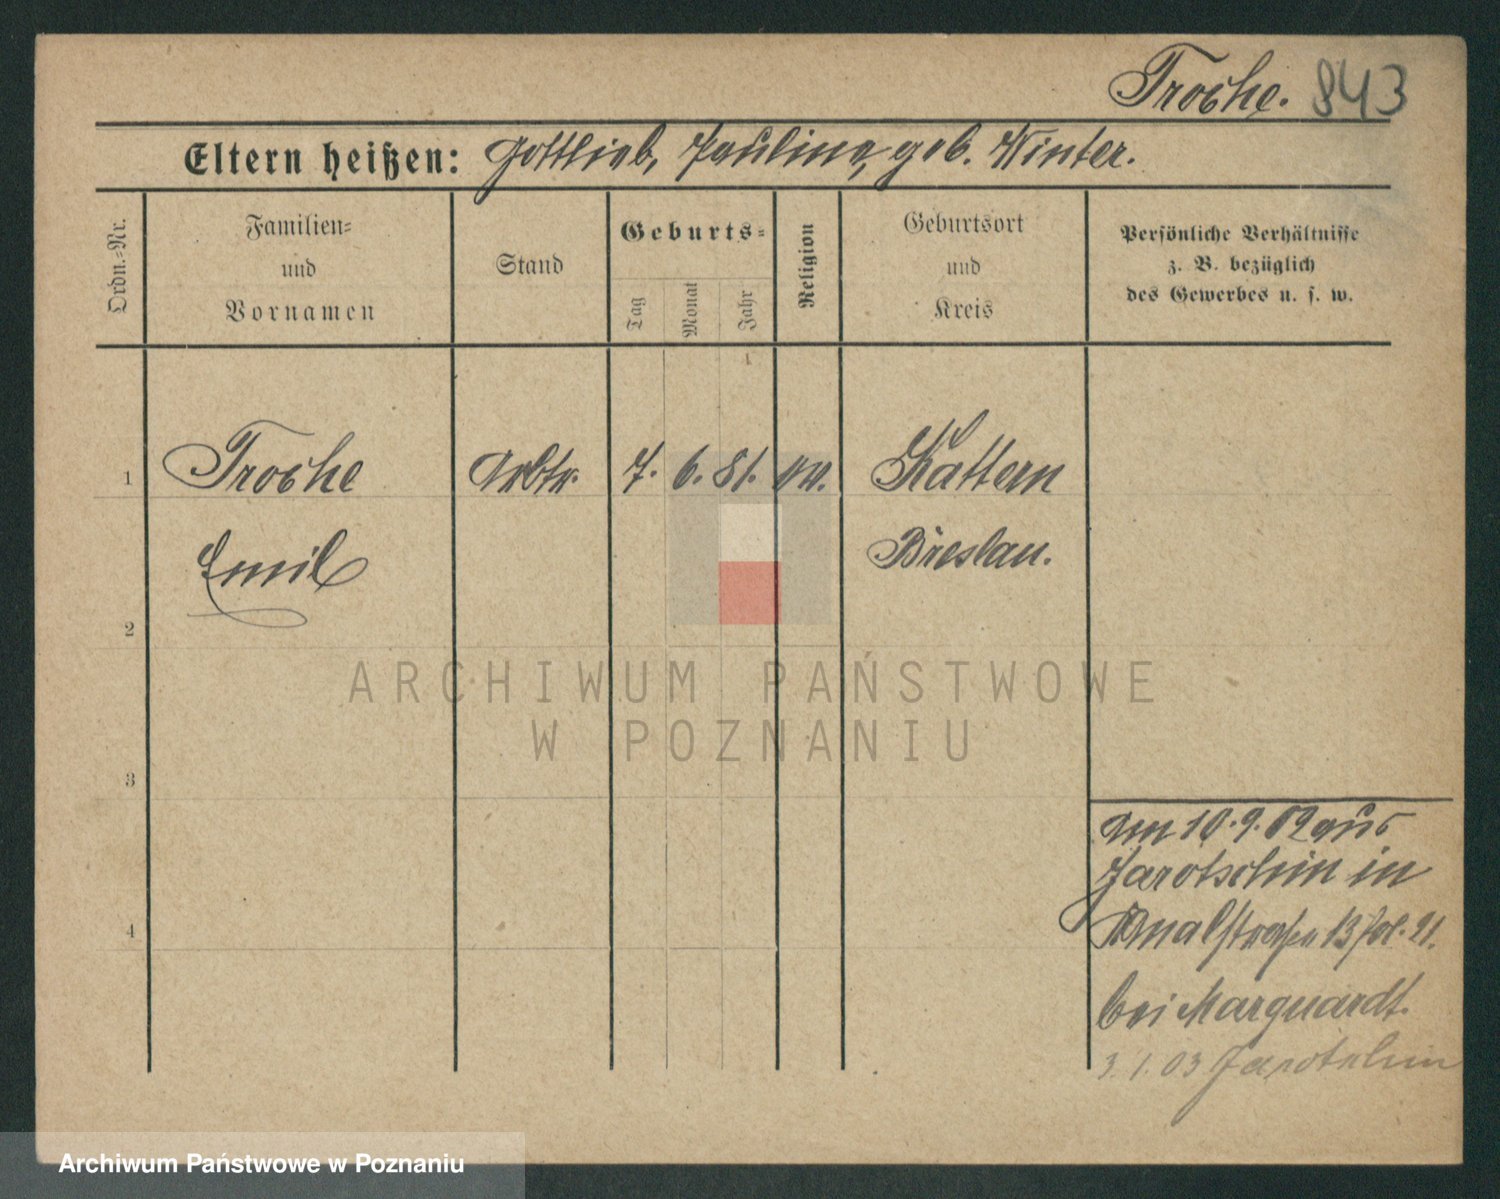 Troche. 843
Eltern heißen: Gottlieb, Pauline, geb. Winter.
Ordn.-Nr.
Familien=
und
Vornamen
Stand
Geburts=
Tag
Monat
Jahr
Religion
Geburtsort
und
Kreis
Persönliche Verhältnisse
z. B. bezüglich
des Gewerbes u. s. w.
1 Troche Arbtr. 7. 6. 81. ev. Kattern
Emil Breslau.
2
3
4
am 10.9.02 aus
Jarotschin in
13 21.
bei Marquardt.
3.1.03 Jarotschin
ARCHIWUM PAŃSTWOWE
W POZNANIU
Archiwum Państwowe w Poznaniu